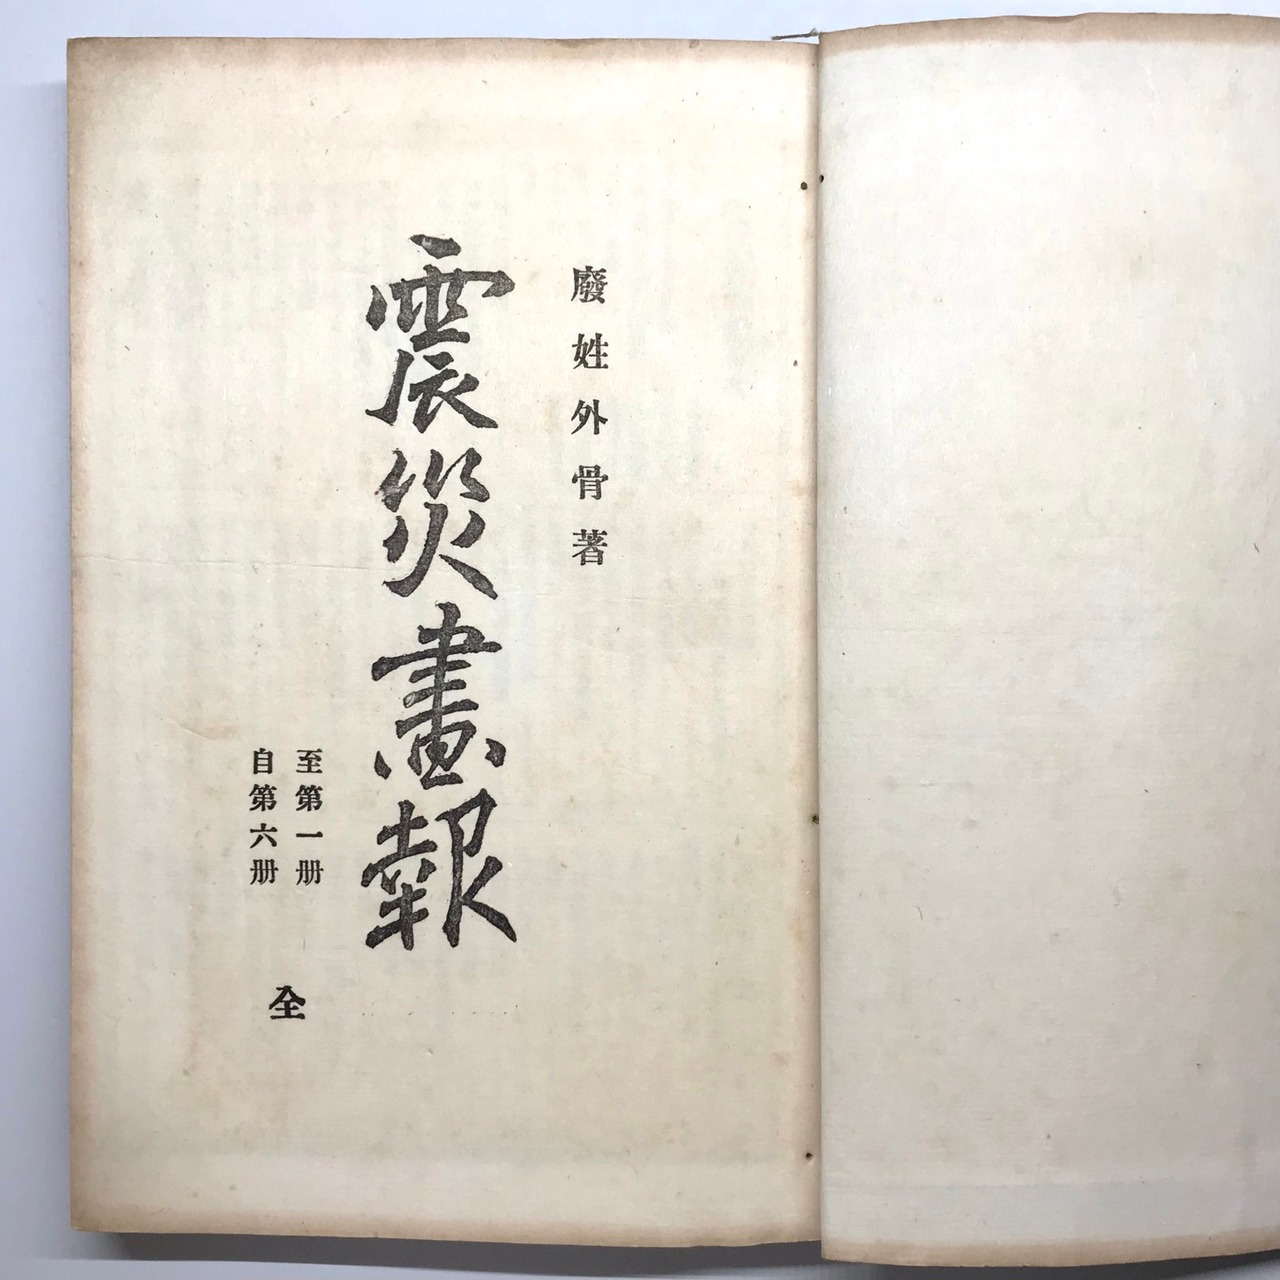 廢姓外骨著
震災畫報
至第一册
自第六册
全